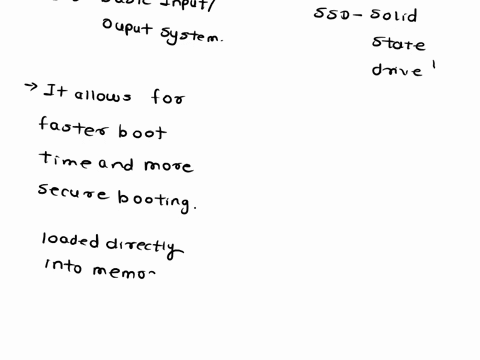 Input/
Ouput System.
SSD - Solid
State
drive
→ It allows for
faster boot
time and more
secure booting.
loaded directly
into memo